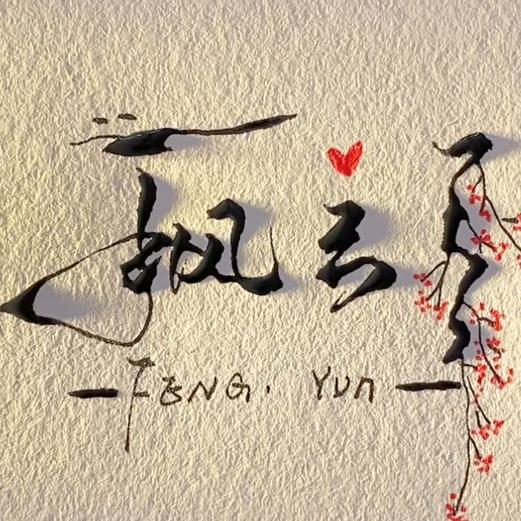 枫云
FENG. YUN